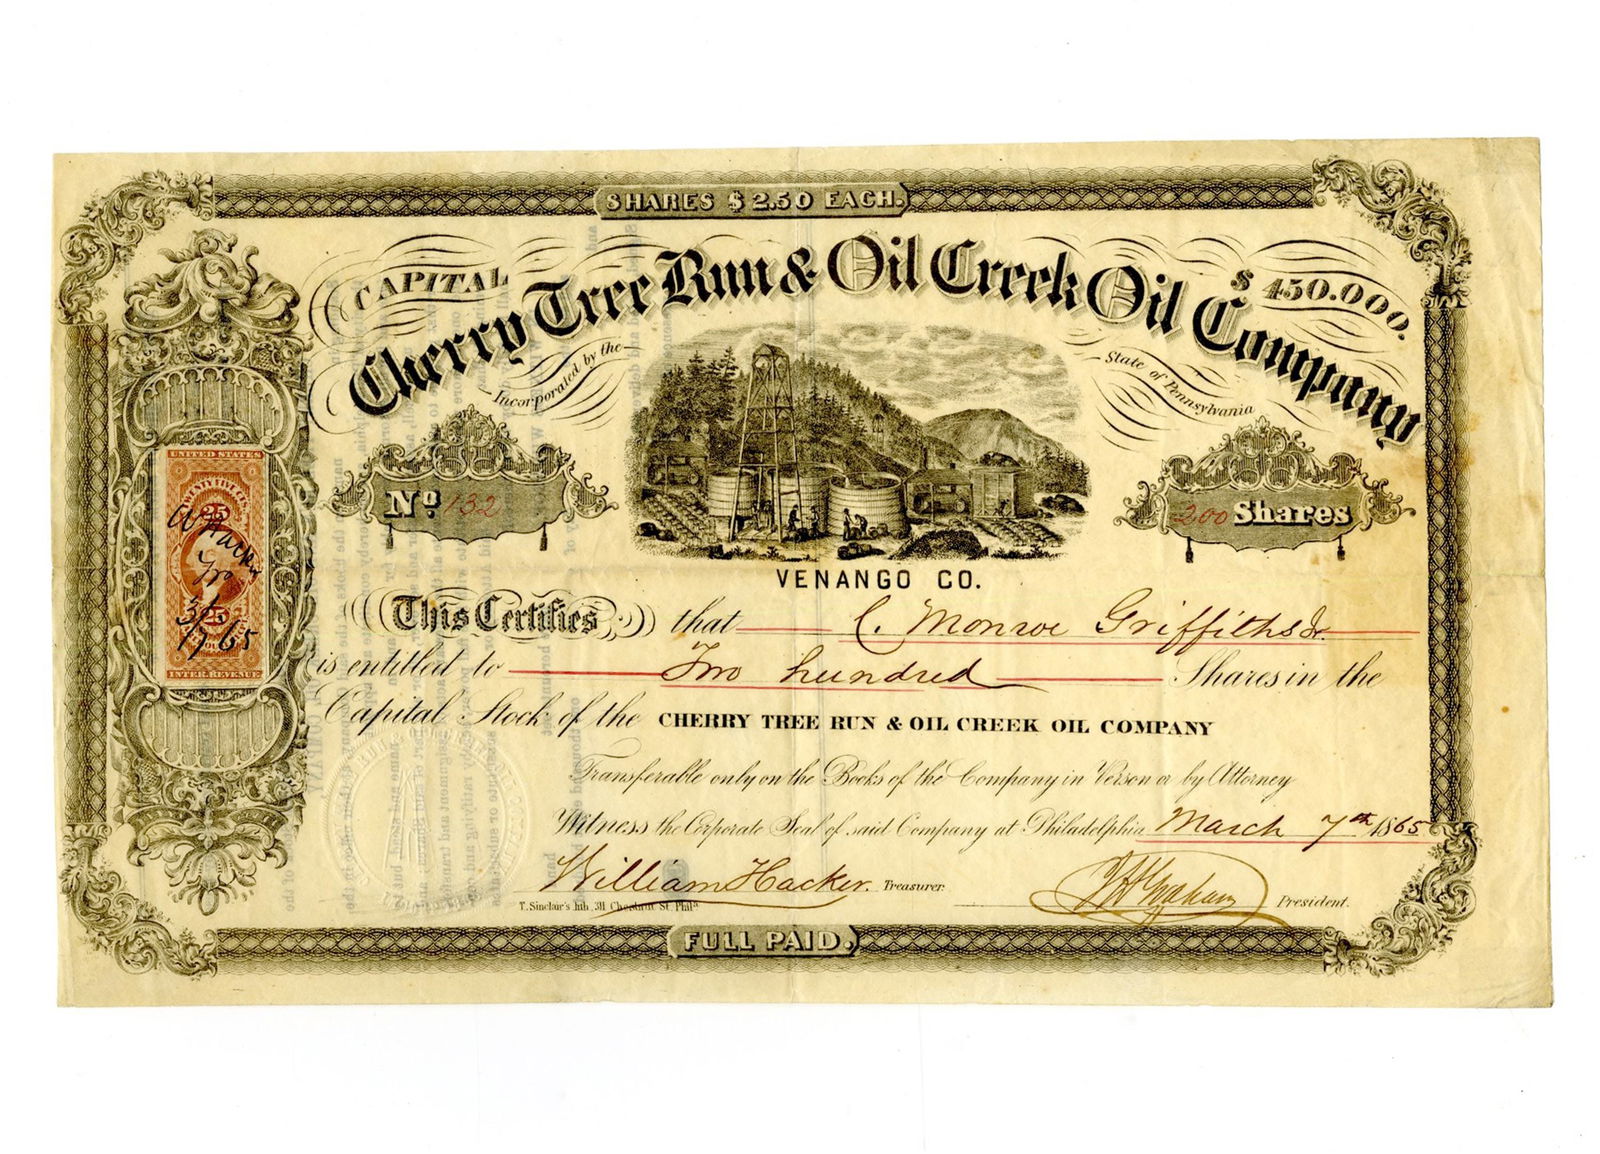 SHARES $2.50 EACH.
CAPITAL $450.000.
Cherry Tree Run & Oil Creek Oil Company
Incorporated by the State of Pennsylvania
No. 132
200 Shares
VENANGO CO.
This Certifies that C. Monroe Griffiths Jr.
is entitled to Two hundred Shares in the
Capital Stock of the CHERRY TREE RUN & OIL CREEK OIL COMPANY
Transferable only on the Books of the Company in Person or by Attorney
Witness the Corporate Seal of said Company at Philadelphia March 7th 1865
William Hacker. Treasurer.
President.
T. Sinclair's lith, 311 Chestnut St. Phila
FULL PAID.
UNITED STATES
25
W Hacker
Tro
3/
7/65
25
INTER. REVENUE